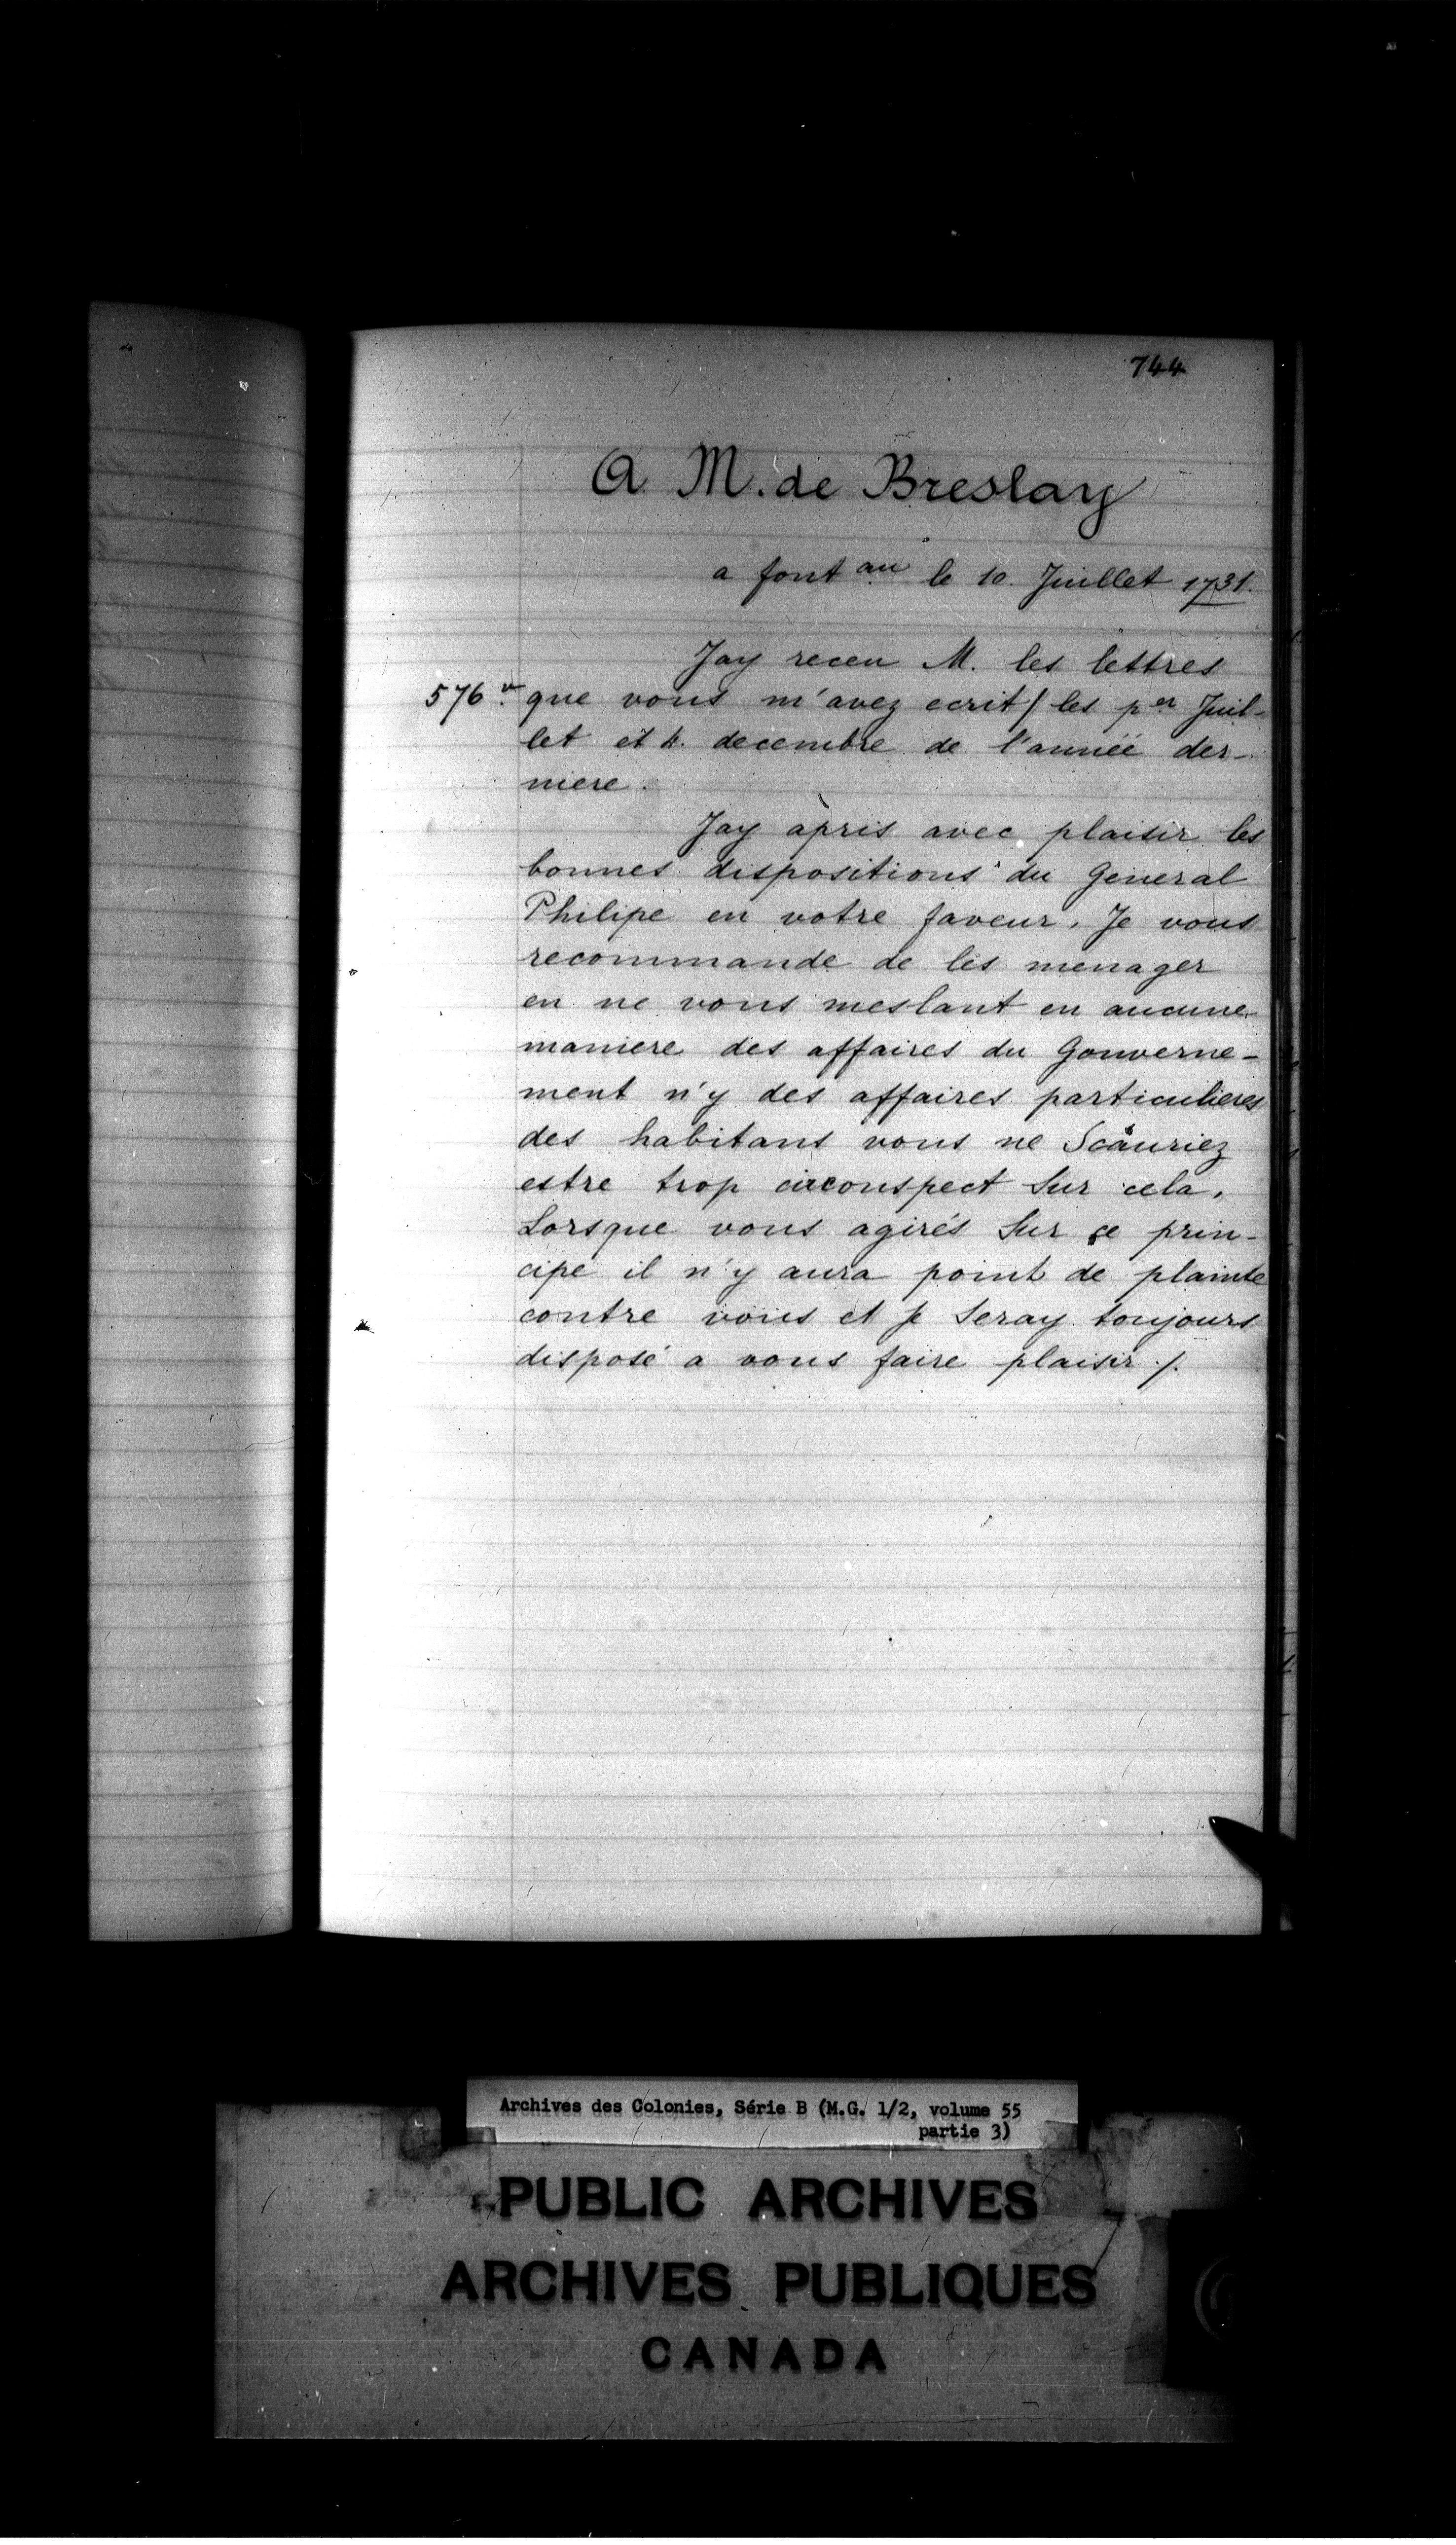 744
A M. de Breslay
a font au le 10. Juillet 1731.
Jay receu M. les lettres
576 v. que vous m'avez ecrit / les p er Juil-
let et 4. decembre de l'année der-
niere.
Jay apris avec plaisir les
bonnes dispositions du General
Philipe en votre faveur. Je vous
recommande de les menager
en ne vous meslant en aucune
maniere des affaires du Gouverne-
ment n'y des affaires particulieres
des habitans vous ne Scauriez
estre trop circonspect sur cela.
Lorsque vous agirés sur ce prin-
cipe il n'y aura point de plainte
contre vous et je seray toujours
disposé a vous faire plaisir ./.
Archives des Colonies, Série B (M.G. 1/2, volume 55
partie 3)
PUBLIC ARCHIVES
ARCHIVES PUBLIQUES
CANADA